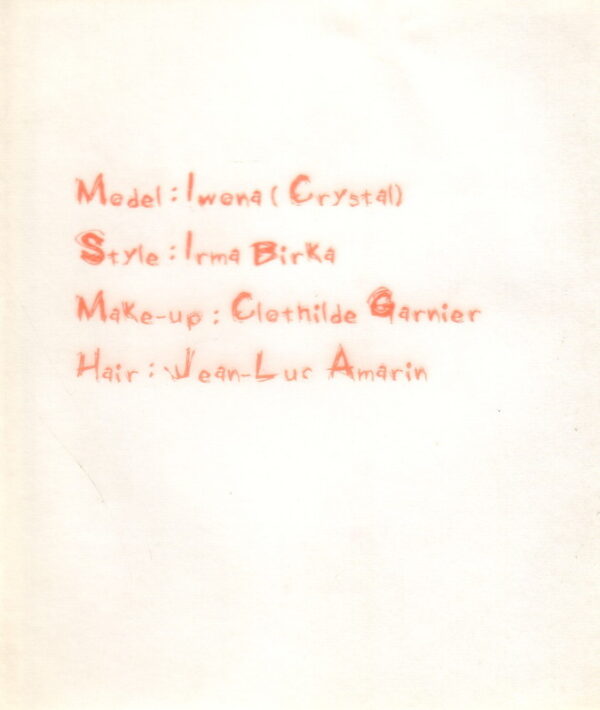 Model : Iwona ( Crystal)
Style : Irma Birka
Make-up : Clothilde Garnier
Hair : Jean-Luc Amarin